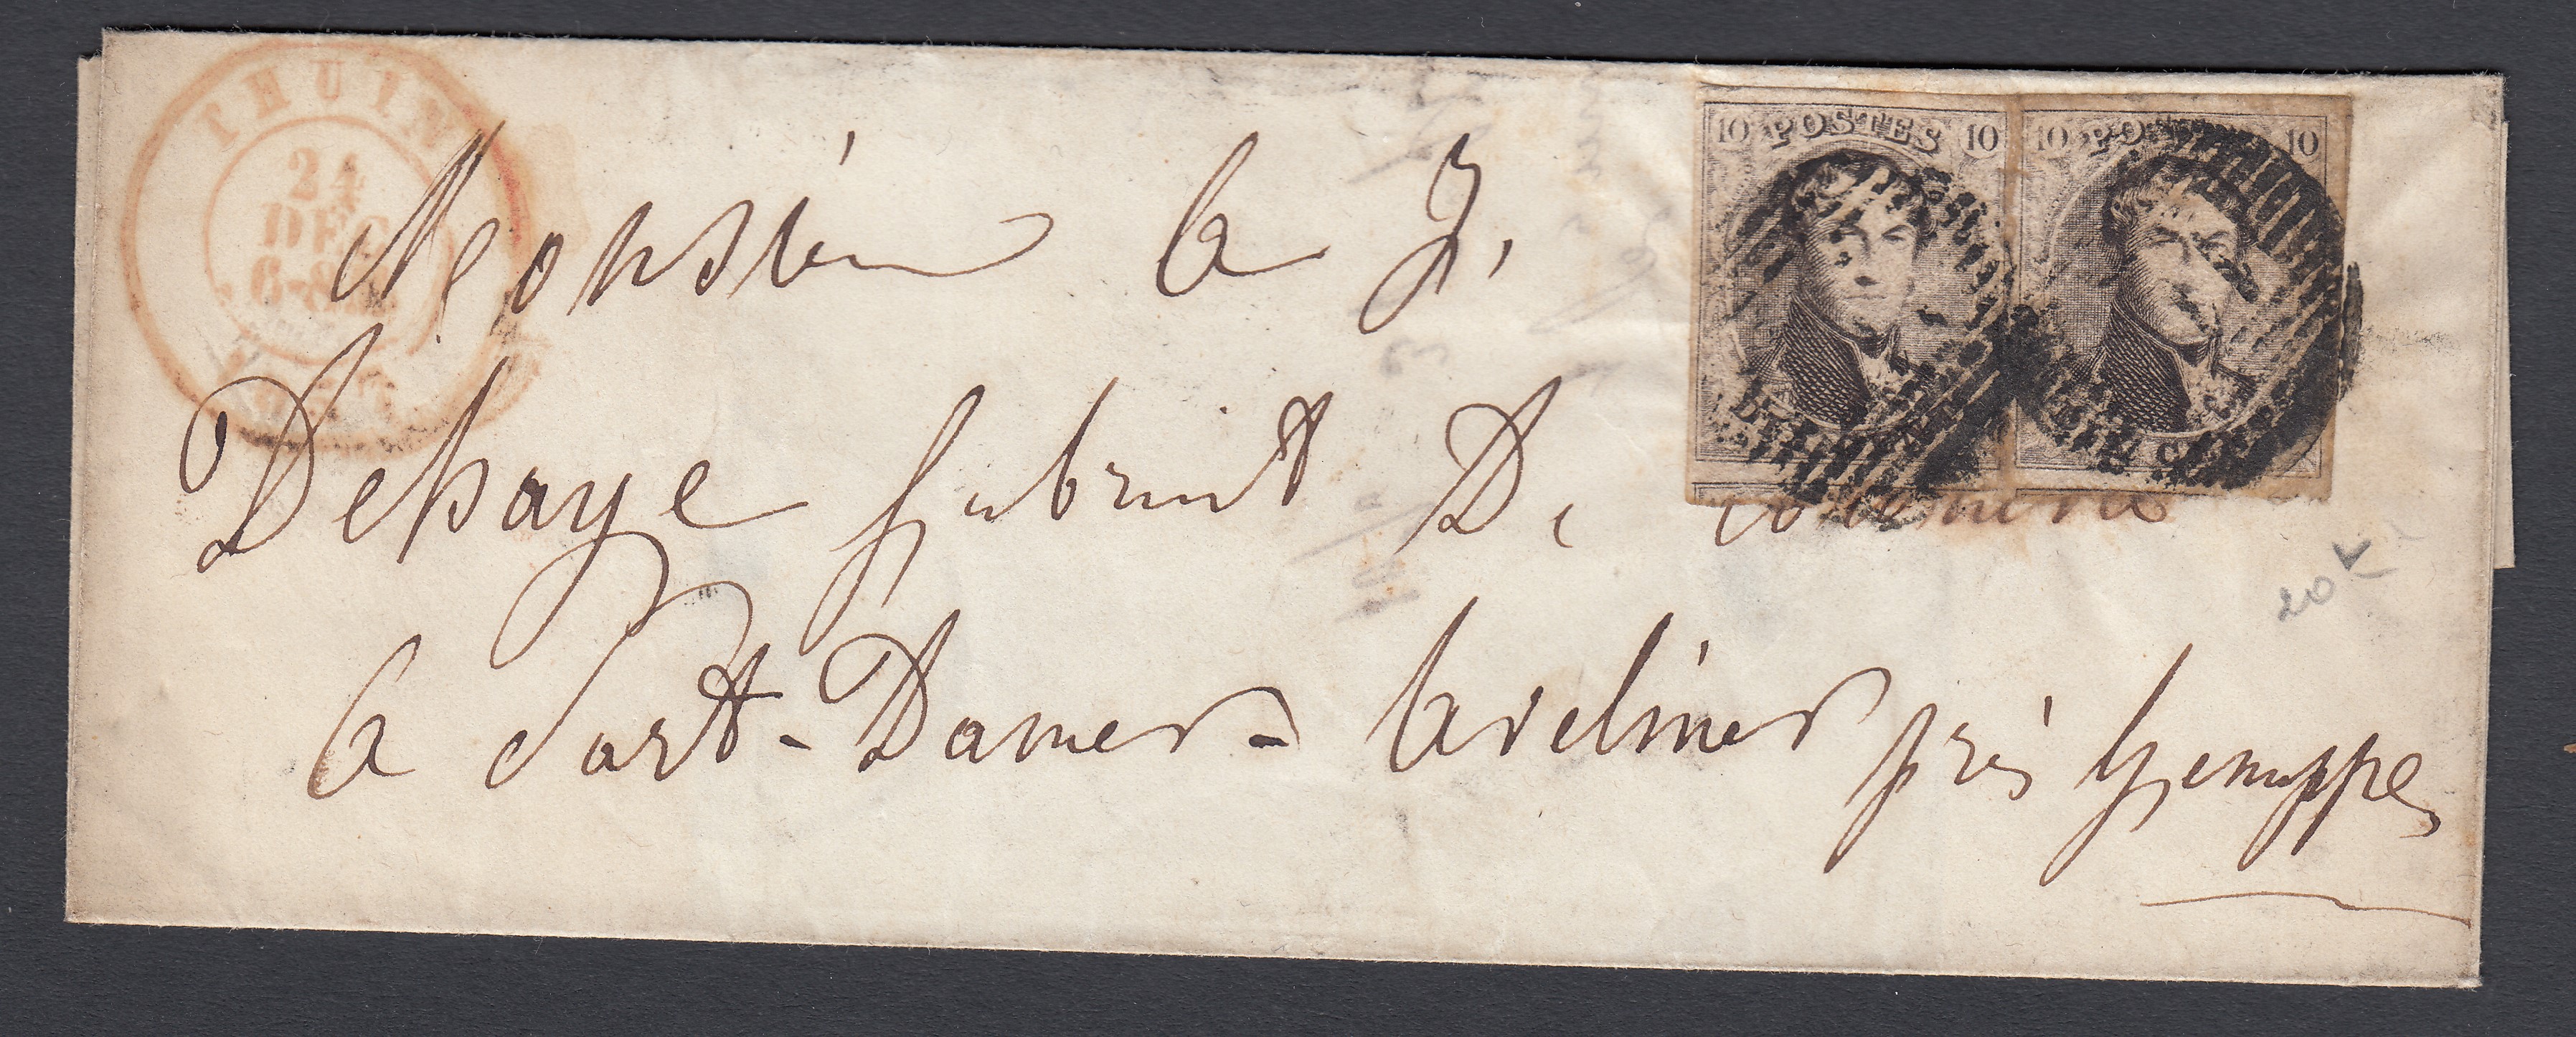 THUIN
24
DEC
6-8
10 POSTES 10
10 PO 10
Monsieur A J,
Dehaye fabricant De
a Sart-Dames-Avelines près Genappe
20